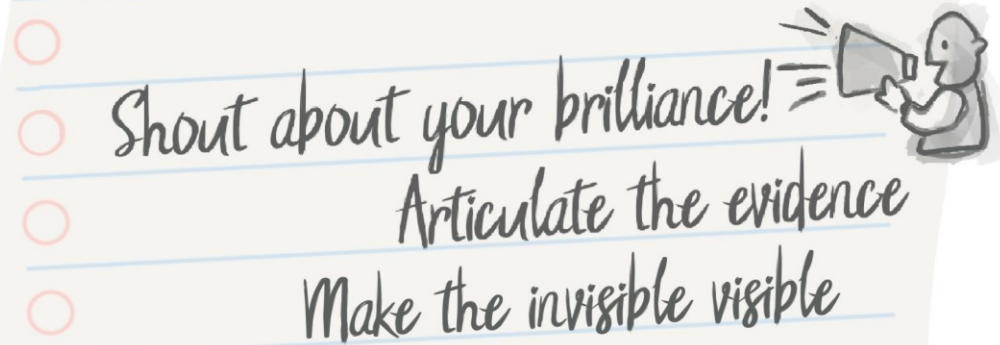 Shout about your brilliance!
Articulate the evidence
Make the invisible visible